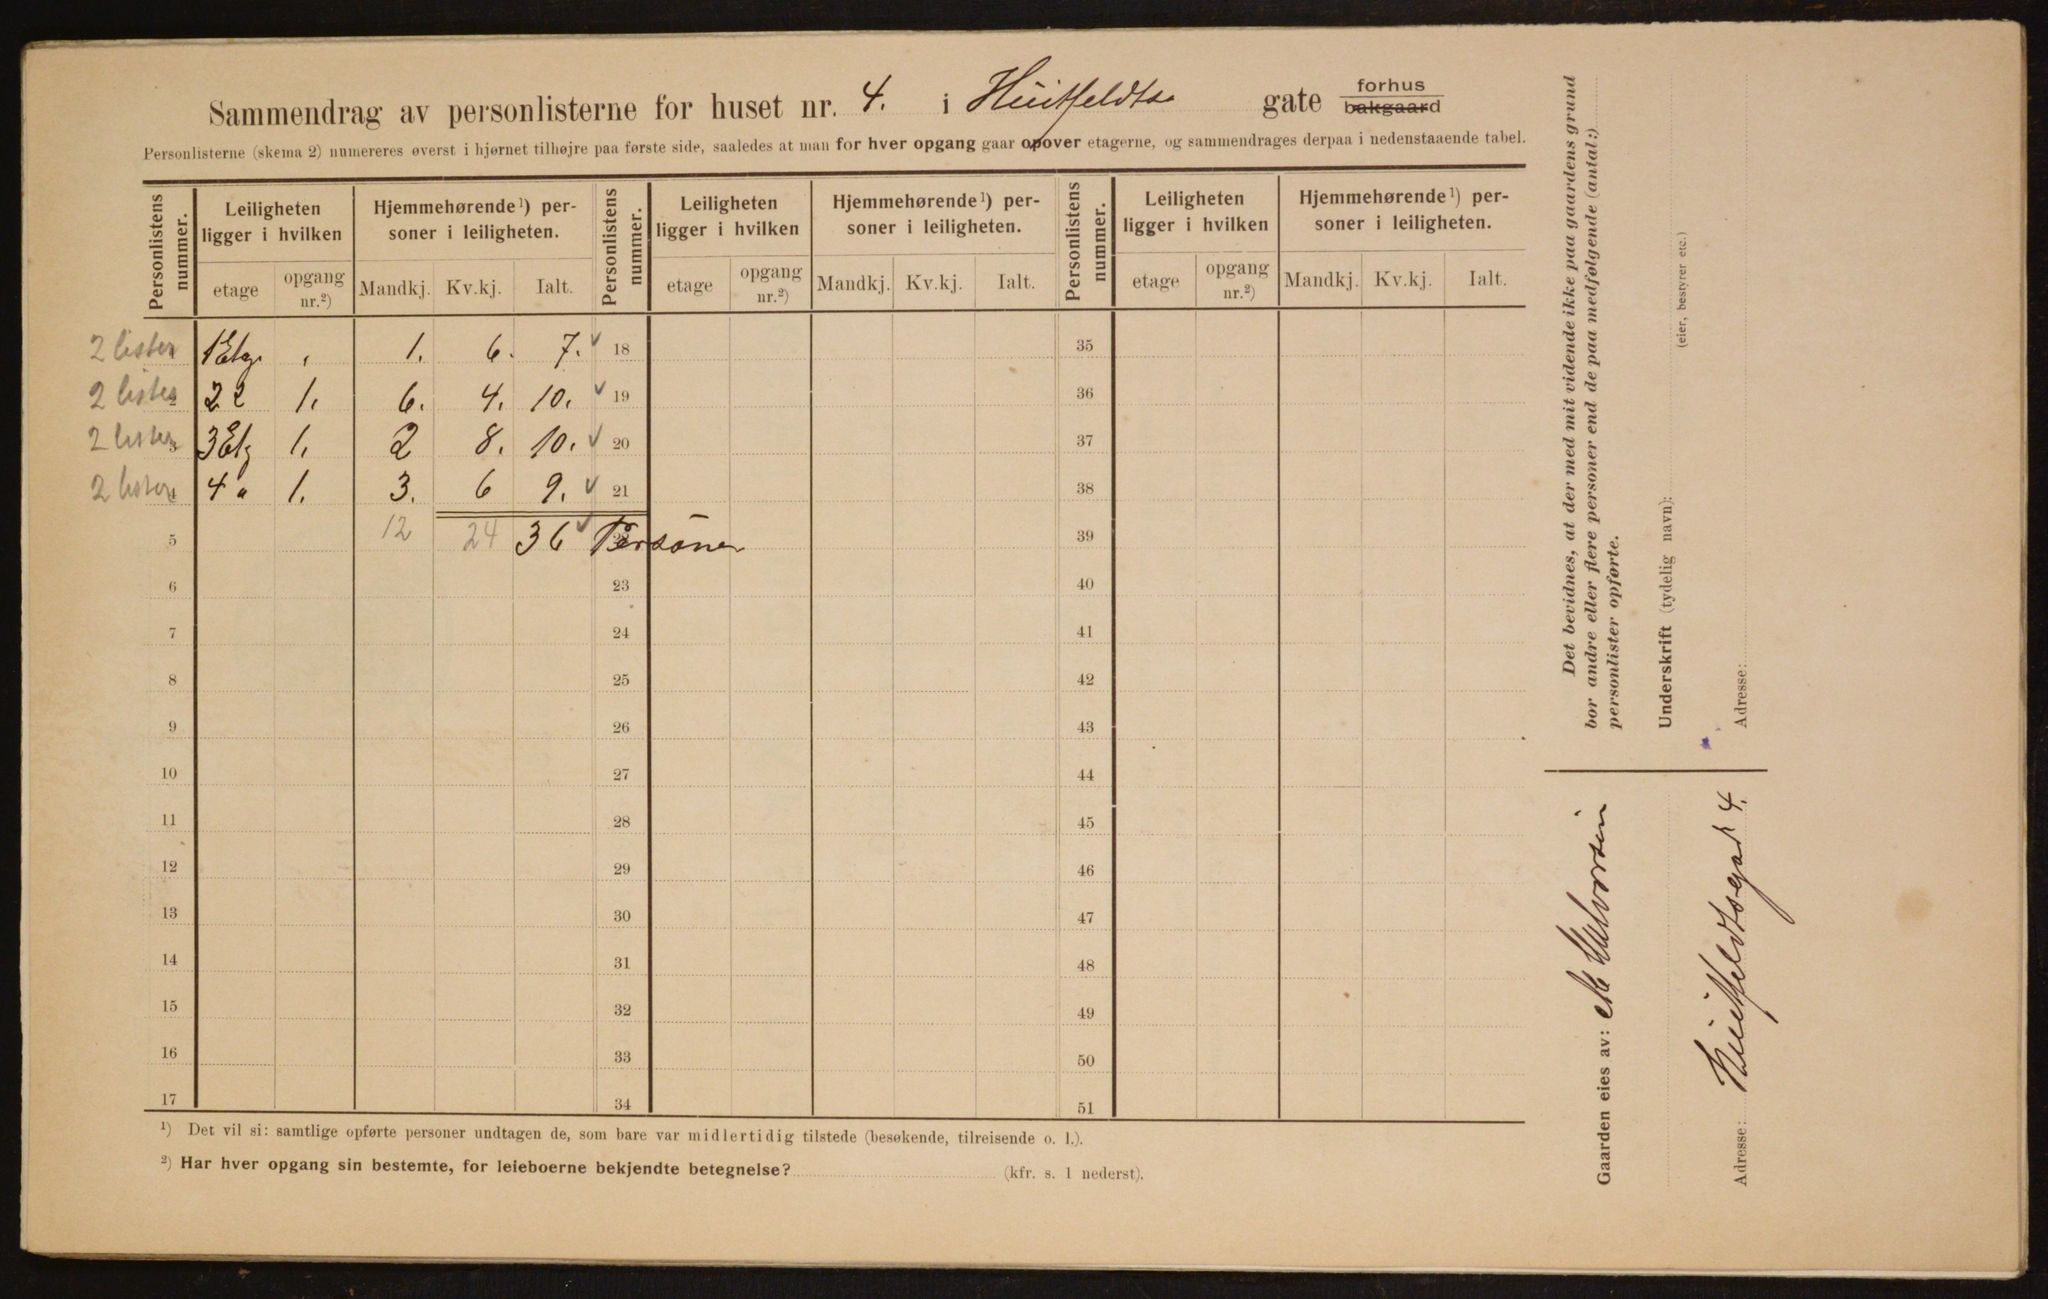 Sammendrag av personlisterne for huset nr. 4. i Huitfeldts gate forhus
bakgaard
Personlisterne (skema 2) numereres øverst i hjørnet tilhøjre paa første side, saaledes at man for hver opgang gaar opover etagerne, og sammendrages derpaa i nedenstaaende tabel.
Personlistens nummer. Leiligheten ligger i hvilken Hjemmehørende¹) personer i leiligheten. Personlistens nummer. Leiligheten ligger i hvilken Hjemmehørende¹) personer i leiligheten. Personlistens nummer. Leiligheten ligger i hvilken Hjemmehørende¹) personer i leiligheten.
etage opgang nr.²) Mandkj. Kv.kj. Ialt. etage opgang nr.²) Mandkj. Kv.kj. Ialt. etage opgang nr.²) Mandkj. Kv.kj. Ialt.
2 lister 1 Etg. 1. 6. 7. 18 35
2 lister 2 2 1. 6. 4. 10. 19 36
2 lister 3 3 Etg 1. 2 8. 10. 20 37
2 lister 4 4 " 1. 3. 6 9. 21 38
5 12 24 36 Personer 39
6 23 40
7 24 41
8 25 42
9 26 43
10 27 44
11 28 45
12 29 46
13 30 47
14 31 48
15 32 49
16 33 50
17 34 51
¹) Det vil si: samtlige opførte personer undtagen de, som bare var midlertidig tilstede (besøkende, tilreisende o. l.).
²) Har hver opgang sin bestemte, for leieboerne bekjendte betegnelse? (kfr. s. 1 nederst).
Det bevidnes, at der med mit vidende ikke paa gaardens grund
bor andre eller flere personer end de paa medfølgende (antal:)
personlister opførte.
Underskrift (tydelig navn):
(eier, bestyrer etc.)
Adresse:
Gaarden eies av: M Halvorsen
Adresse: Huitfeldtsgad 4.